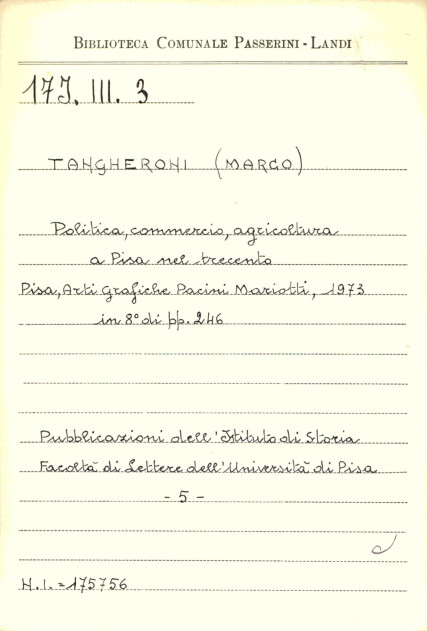 BIBLIOTECA COMUNALE PASSERINI - LANDI
17J. III. 3
TANGHERONI (MARCO)
Politica, commercio, agricoltura
a Pisa nel trecento
Pisa, Arti Grafiche Pacini Mariotti, 1973
in 8° di pp. 246
Pubblicazioni dell'Istituto di Storia
Facoltà di Lettere dell'Università di Pisa
- 5 -
N.I. = 175756